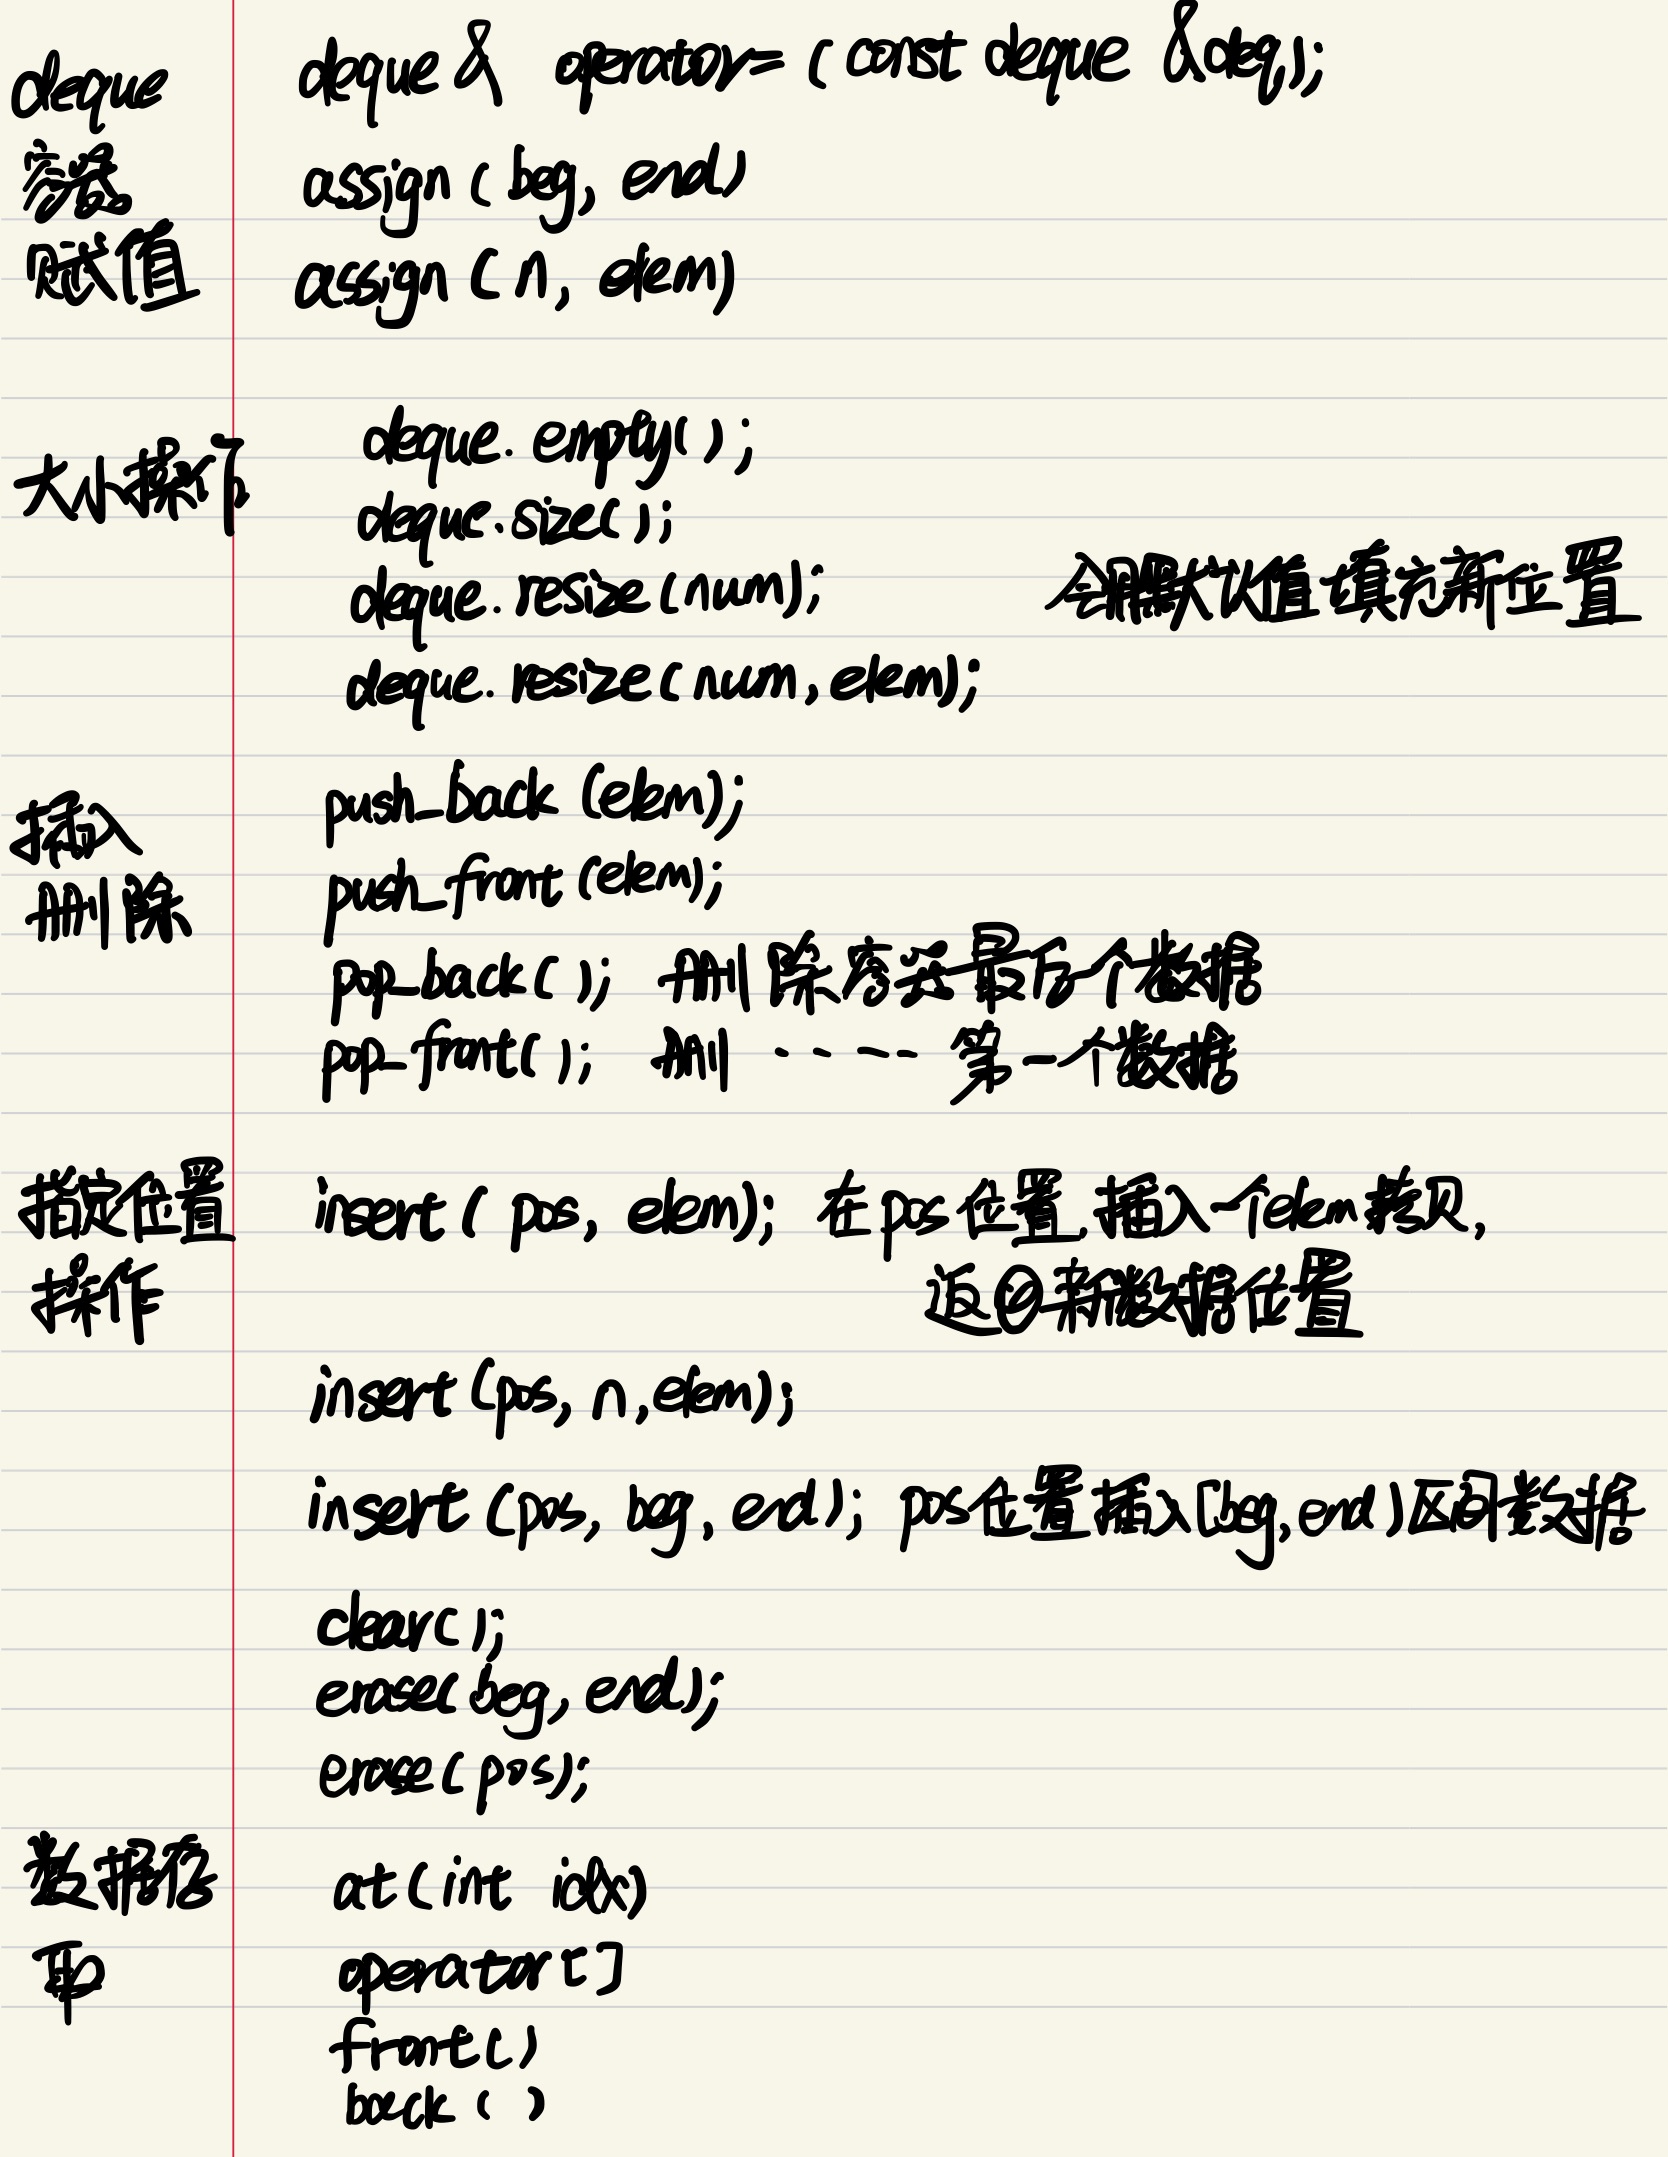 deque    deque & operator= (const deque &deq);
容器    assign (beg, end)
赋值    assign (n, elem)
deque. empty();
大小操作
deque.size();
deque. resize (num);    会用默认值填充新位置
deque. resize (num, elem);
push_back (elem);
插入
push_front (elem);
删除
pop_back(); 删除容器最后一个数据
pop_front(); 删 ---- 第一个数据
指定位置    insert ( pos, elem); 在pos位置插入一个elem拷贝,
操作    返回新数据位置
insert (pos, n, elem);
insert (pos, beg, end); pos位置插入[beg, end)区间数据
clear();
erase(beg, end);
erase(pos);
数据存    at(int idx)
取    operator[]
front()
back ( )